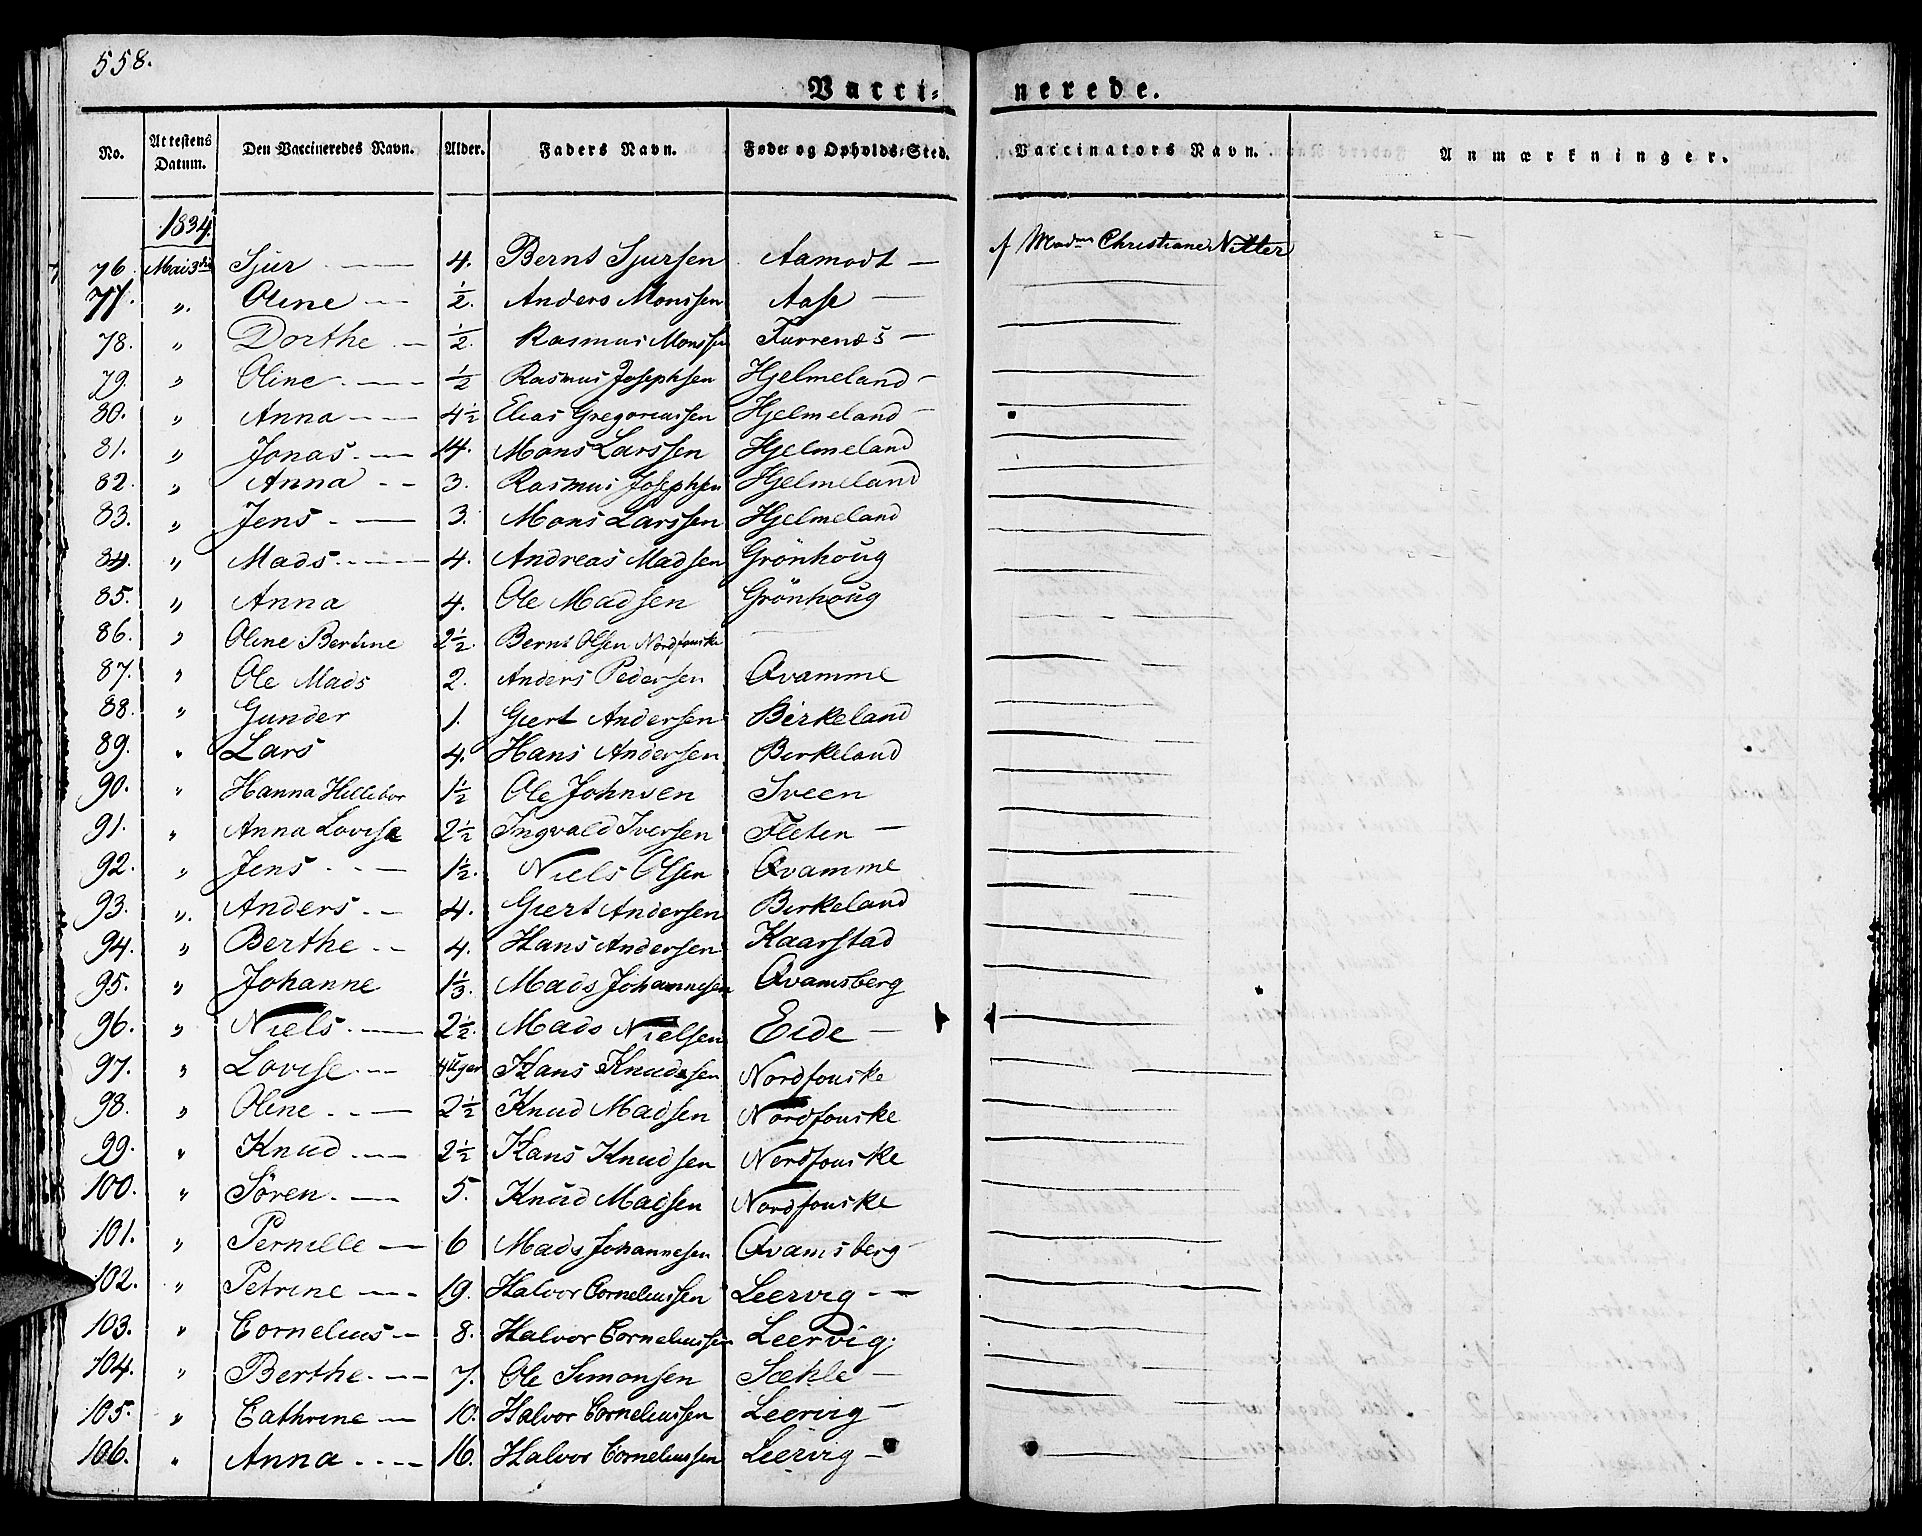 558.
Vacci- nerede.
No. Attestens Datum. Den Vaccineredes Navn. Alder. Faders Navn. Føde- og Opholds-Sted. Vaccinators Navn. Anmærkninger.
1834.
76. Mai 3die Sjur 4. Bernt Sjursen Aamodt af Madme Christiane Nitter
77. " Oline 1/2. Anders Monssen Aase
78. " Dorthe 1/2. Rasmus Monssen Furrenes
79. " Oline 1/2 Rasmus Josephsen Hjelmeland
80. " Anna 4 1/2 Elias Gregoriussen Hjelmeland
81. " Jonas 14. Mons Larssen Hjelmeland
82. " Anna 3. Rasmus Josephsen Hjelmeland
83. " Jens 3. Mons Larssen Hjelmeland
84. " Mads 4. Andreas Madsen Grönhoug
85. " Anna 4. Ole Madsen Grönhoug
86. " Oline Bertine 2 1/2. Bernt Olsen Nordfonske
87. " Ole Mads 2. Anders Pedersen Qvamme
88. " Gunder 1. Giert Andersen Birkeland
89. " Lars 4. Hans Andersen Birkeland
90. " Hanna Hellebor 1 1/2 Ole Johnsen Sveen
91. " Anna Lovise 2 1/2 Ingvald Iversen Fleten
92. " Jens 1 1/2. Niels Olsen Qvamme
93. " Anders 4. Giert Andersen Birkeland
94. " Berthe 4. Hans Andersen Kaarstad
95. " Johanne 1 1/3. Mads Johannesen Qvamsberg
96. " Niels 2 1/2. Mads Nielsen Eide
97. " Lovise 4 Uger Hans Knudsen Nordfonske
98. " Oline 2 1/2 Knud Madsen Nordfonske
99. " Knud 2 1/2 Hans Knudsen Nordfonske
100. " Sören 5. Knud Madsen Nordfonske
101. " Pernille 6 Mads Johannesen Qvamsberg
102. " Petrine 19. Halvor Corneliussen Leervig
103. " Cornelius 8. Halvor Corneliussen Leervig.
104. " Berthe 7. Ole Simonsen Sækle
105. " Cathrine 10. Halvor Corneliussen Leervig
106. " Anna 16. Halvor Corneliussen Leervig